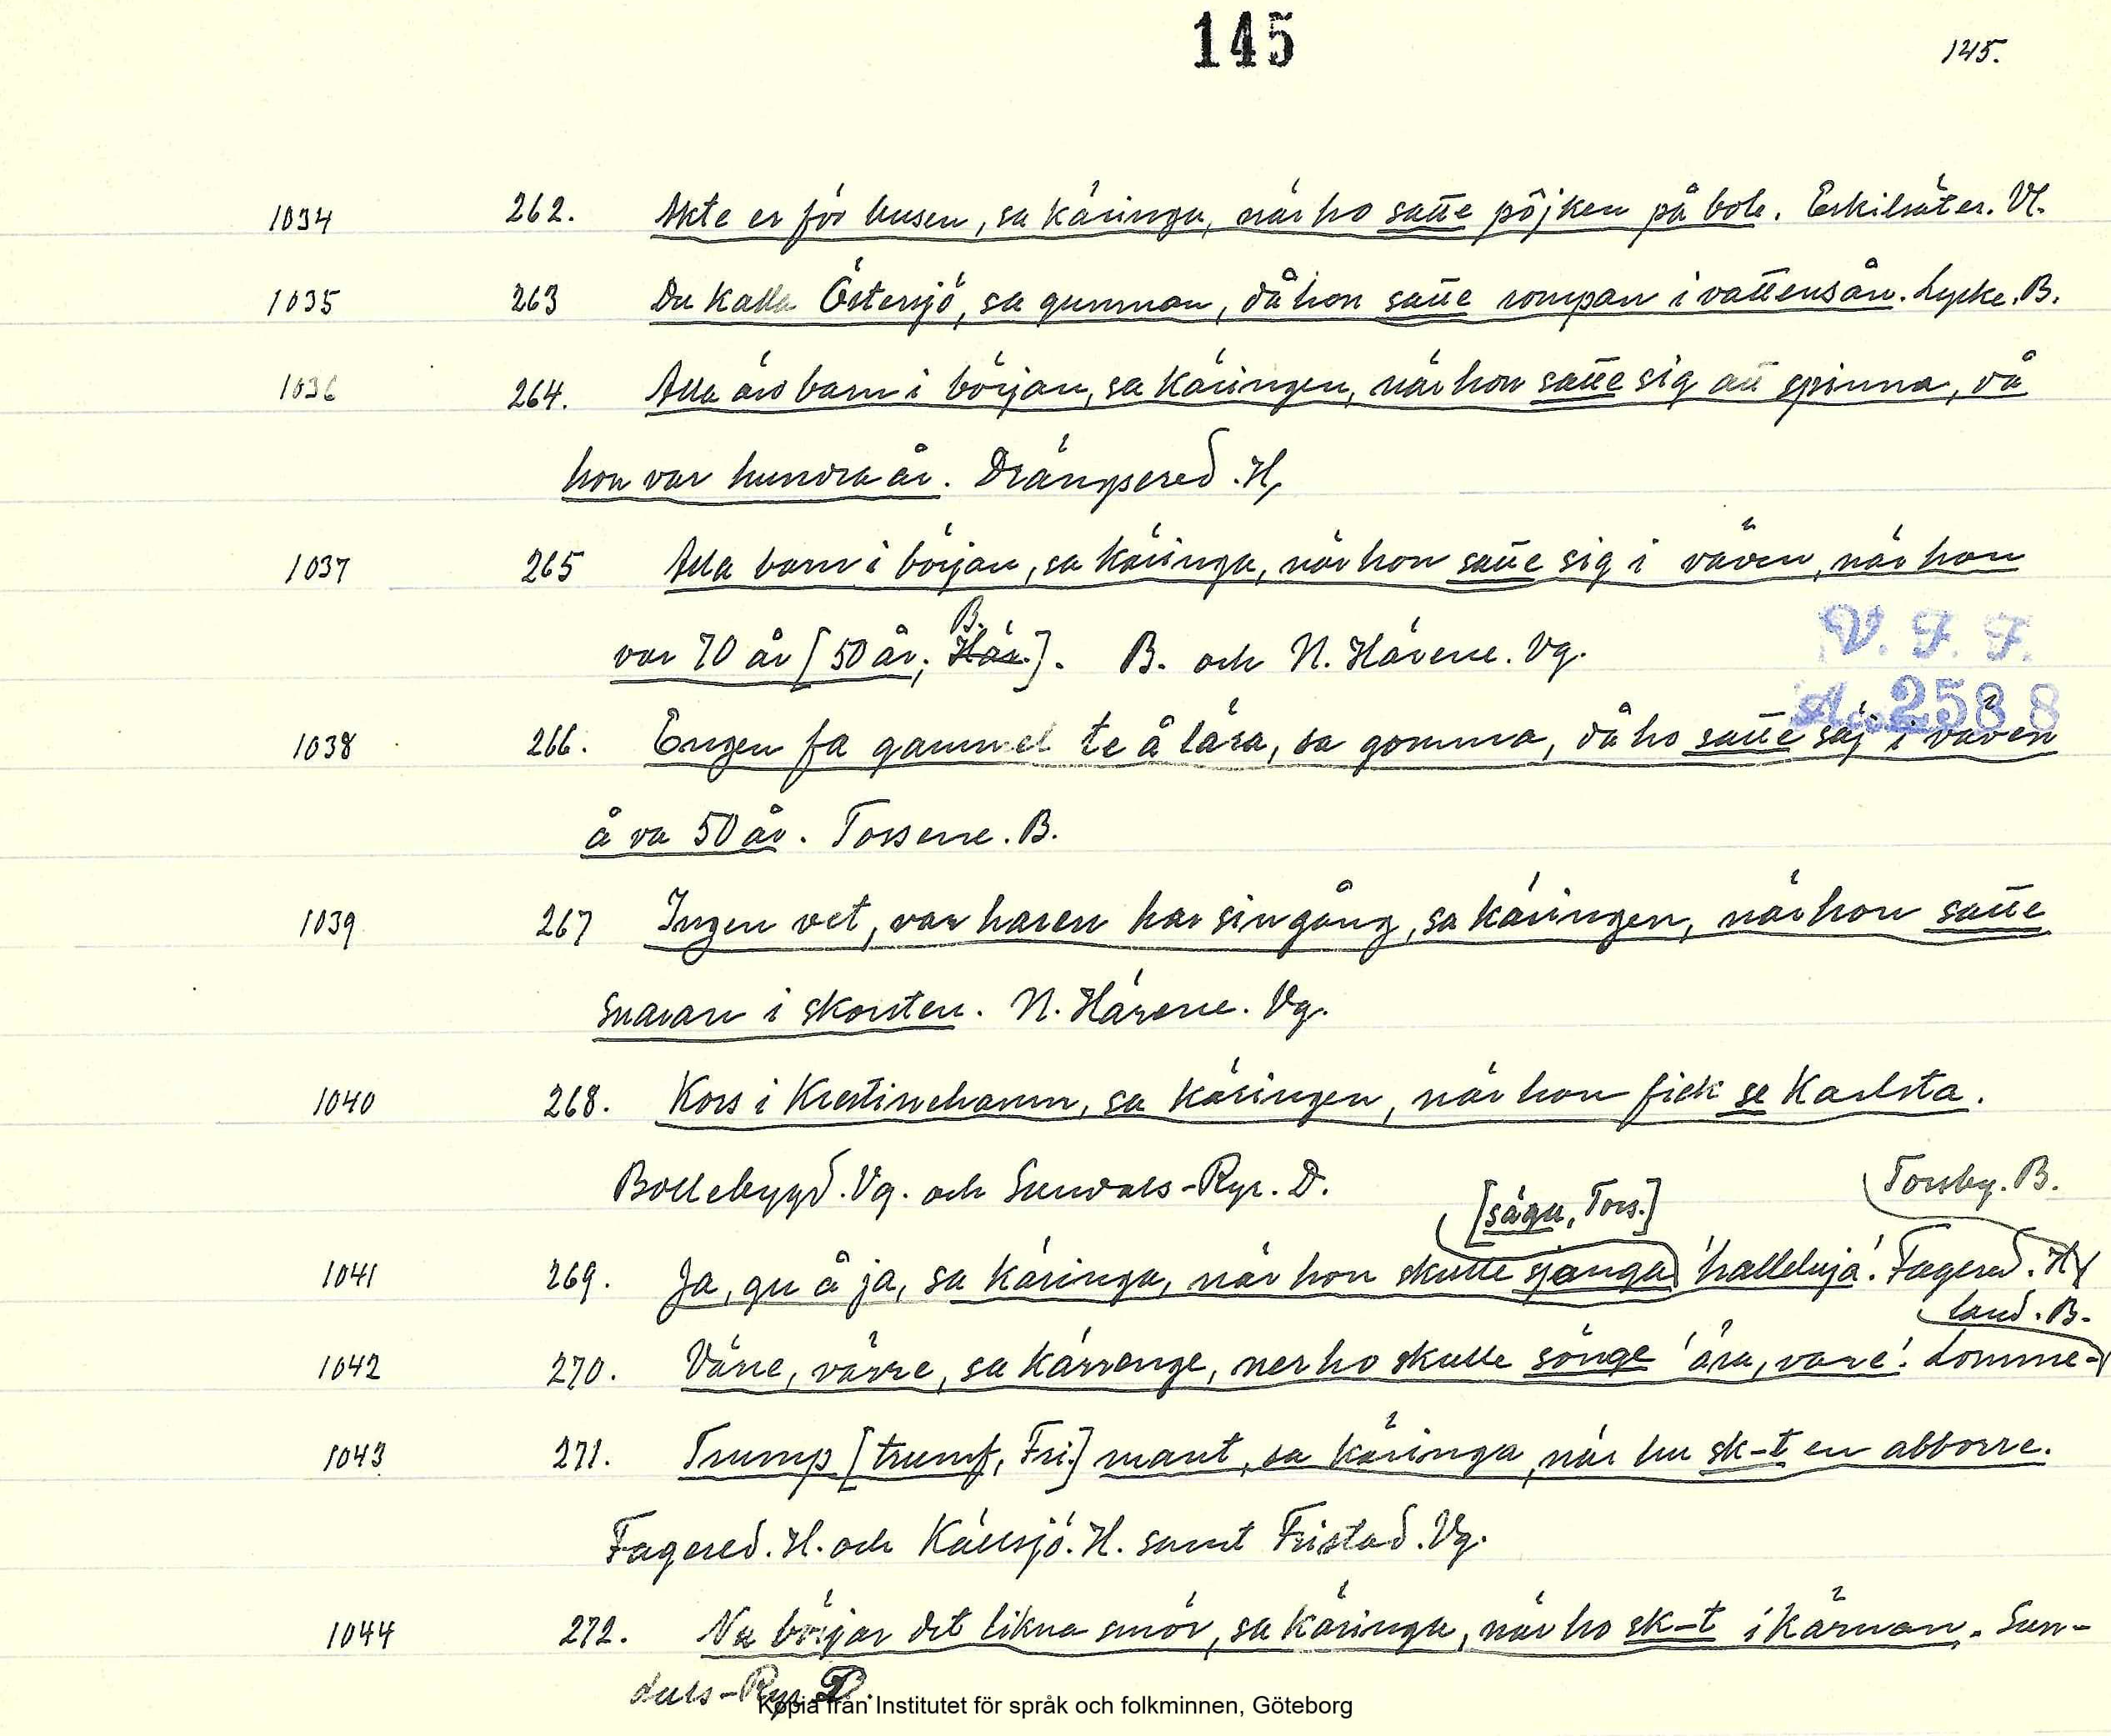 145
145.
1034 262. Akte er för busen, sa käringa, när ho satte pöjken på bole. Eskilsäter. Vl.
1035 263 Du kalla Östersjö, sa gumman, då hon satte rompan i vattensån. Lycke. B.
1036 264. Alla äro barn i början, sa käringen, när hon satte sig att spinna, då
hon var hundra år. Drängsered. H.
1037 265 Alla barn i början, sa käringa, när hon satte sig i väven, när hon
B.
var 70 år [50 år; Här.]. B. och N. Härene. Vg.
V. F. F.
Acc. 2588
1038 266. Engen fa gammel te å lära, sa gomma, då ho satte säj i väven
å va 50 år. Tossene. B.
1039 267 Ingen vet, var haren har sin gång, sa käringen, när hon satte
snaran i skorsten. N. Härene. Vg.
1040 268. Kors i Kristinehamn, sa käringen, när hon fick se Karlsta.
Bollebygd. Vg. och Sundals-Ryr. D.
[sägu, Tors.] Torsby. B.
1041 269. Ja, gu å ja, sa käringa, när hon skulle sjonga 'halleluja'. Fagered. H.
land. B.
1042 270. Värre, värre, sa kärrenge, ner ho skulle sönge 'ära, vare'. Lomme-
1043 271. Trump [trumf, Fri.] mant, sa käringa, när hu sk-t en abborre.
Fagered. H. och Källsjö. H. samt Fristad. Vg.
1044 272. Nu börjar det likna smör, sa käringa, när ho sk-t i kärnan. Sun-
dals-Ryr. D.
Kopia från Institutet för språk och folkminnen, Göteborg